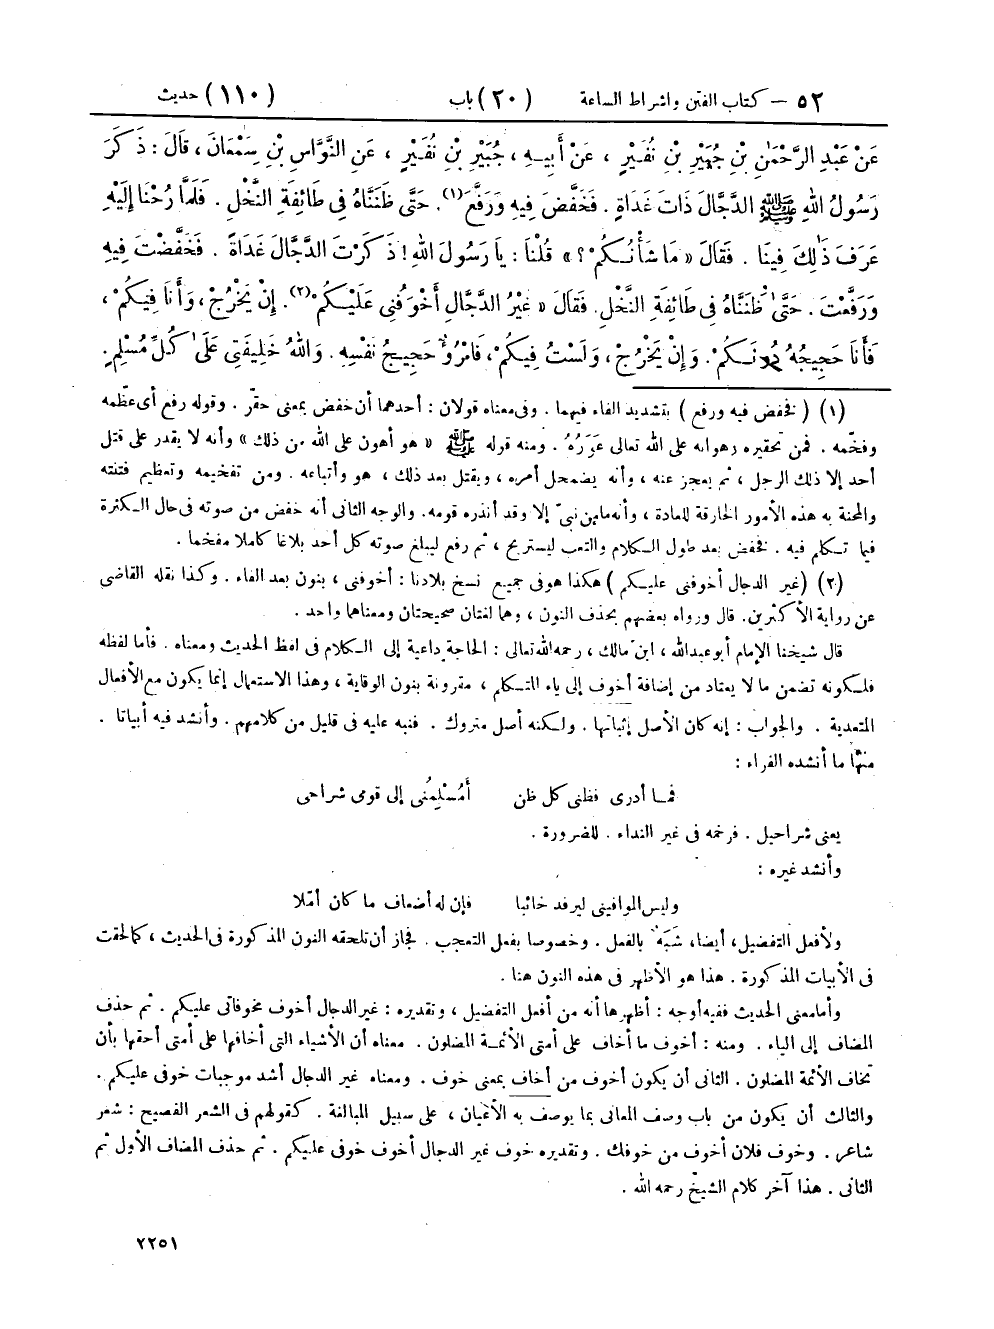 ٥٢ – كتاب الفتن وأشراط الساعة (٢٠) باب (١١٠) حديث
عَنْ عَبْدِ الرَّحْمَٰنِ بْنِ جُبَيْرِ بْنِ نُفَيْرٍ ، عَنْ أَبِيهِ ، جُبَيْرِ بْنِ نُفَيْرٍ ، عَنِ النَّوَّاسِ بْنِ سِمْعَانَ ، قَالَ : ذَكَرَ
رَسُولُ اللهِ ﷺ الدَّجَّالَ ذَاتَ غَدَاةٍ . فَخَفَّضَ فِيهِ وَرَفَّعَ(١). حَتَّى ظَنَنَّاهُ فِي طَائِفَةِ النَّخْلِ . فَلَمَّا رُحْنَا إِلَيْهِ
عَرَفَ ذَٰلِكَ فِينَا . فَقَالَ « مَا شَأْنُكُمْ ؟ » قُلْنَا : يَا رَسُولَ اللهِ ! ذَكَرْتَ الدَّجَّالَ غَدَاةً . فَخَفَّضْتَ فِيهِ
وَرَفَّعْتَ . حَتَّىٰ ظَنَنَّاهُ فِي طَائِفَةِ النَّخْلِ . فَقَالَ « غَيْرُ الدَّجَّالِ أَخْوَفُنِي عَلَيْكُمْ(٢). إِنْ يَخْرُجْ ، وَأَنَا فِيكُمْ ،
فَأَنَا حَجِيجُهُ دُونَكُمْ . وَإِنْ يَخْرُجْ ، وَلَسْتُ فِيكُمْ ، فَامْرُؤٌ حَجِيجُ نَفْسِهِ . وَاللهُ خَلِيفَتِي عَلَىٰ كُلِّ مُسْلِمٍ .
(١) (فخفض فيه ورفع) بتشديد الفاء فيهما . وفي معناه قولان : أحدهما أن خفض بمعنى حقّر . وقوله رفع أى عظّمه
وفخّمه . فمن تحقيره وهوانه على الله تعالى عَوَرُهُ . ومنه قوله ﷺ « هو أهون على الله من ذلك » وأنه لا يقدر على قتل
أحد إلا ذلك الرجل ، ثم يعجز عنه ، وأنه يضمحل أمره ، ويقتل بعد ذلك ، هو وأتباعه . ومن تفخيمه وتعظيم فتنته
والمحنة به هذه الأمور الخارقة للعادة ، وأنه ما من نبىّ إلا وقد أنذره قومه. والوجه الثانى أنه خفض من صوته فى حال الكثرة
فيما تكلم فيه . فخفض بعد طول الكلام والتعب ليستريح ، ثم رفع ليبلغ صوته كل أحد بلاغا كاملا مفخما .
(٢) (غير الدجال أخوفنى عليكم) هكذا هو فى جميع نسخ بلادنا : أخوفنى ، بنون بعد الفاء . وكذا نقله القاضى
عن رواية الأكثرين. قال ورواه بعضهم بحذف النون ، وهما لغتان صحيحتان ومعناهما واحد .
قال شيخنا الإمام أبو عبدالله ، ابن مالك ، رحمه الله تعالى : الحاجة داعية إلى الكلام فى لفظ الحديث ومعناه . فأما لفظه
فلكونه تضمن ما لا يعتاد من إضافة أخوف إلى ياء المتكلم ، مقرونة بنون الوقاية ، وهذا الاستعمال إنما يكون مع الأفعال
المتعدية . والجواب : إنه كان الأصل إثباتها . ولكنه أصل متروك . فنبه عليه فى قليل من كلامهم . وأنشد فيه أبياتا .
منها ما أنشده الفراء :
فما أدرى فظنى كل ظن أَمُسْلِمُنى إلى قومى شراحى
يعنى شراحيل . فرخمه فى غير النداء . للضرورة .
وأنشد غيره :
وليس الموافينى ليرفد خائبا فإن له أضعاف ما كان أمّلا
ولأفعل التفضيل، أيضا، شَبَهٌ بالفعل . وخصوصا بفعل التعجب . فجاز أن تلحقه النون المذكورة فى الحديث ، كما لحقت
فى الأبيات المذكورة . هذا هو الأظهر فى هذه النون هنا .
وأما معنى الحديث ففيه أوجه : أظهرها أنه من أفعل التفضيل ، وتقديره : غير الدجال أخوف مخوفاتى عليكم . ثم حذف
المضاف إلى الياء . ومنه : أخوف ما أخاف على أمتى الأئمة المضلون . معناه أن الأشياء التى أخافها على أمتى أحقها بأن
تخاف الأئمة المضلون . الثانى أن يكون أخوف من أخاف بمعنى خوف . ومعناه غير الدجال أشد موجبات خوفى عليكم .
والثالث أن يكون من باب وصف المعانى بما يوصف به الأعيان ، على سبيل المبالغة . كقولهم فى الشعر الفصيح : شعر
شاعر . وخوف فلان أخوف من خوفك . وتقديره خوف غير الدجال أخوف خوفى عليكم . ثم حذف المضاف الأول ثم
الثانى . هذا آخر كلام الشيخ رحمه الله .
٢٢٥١